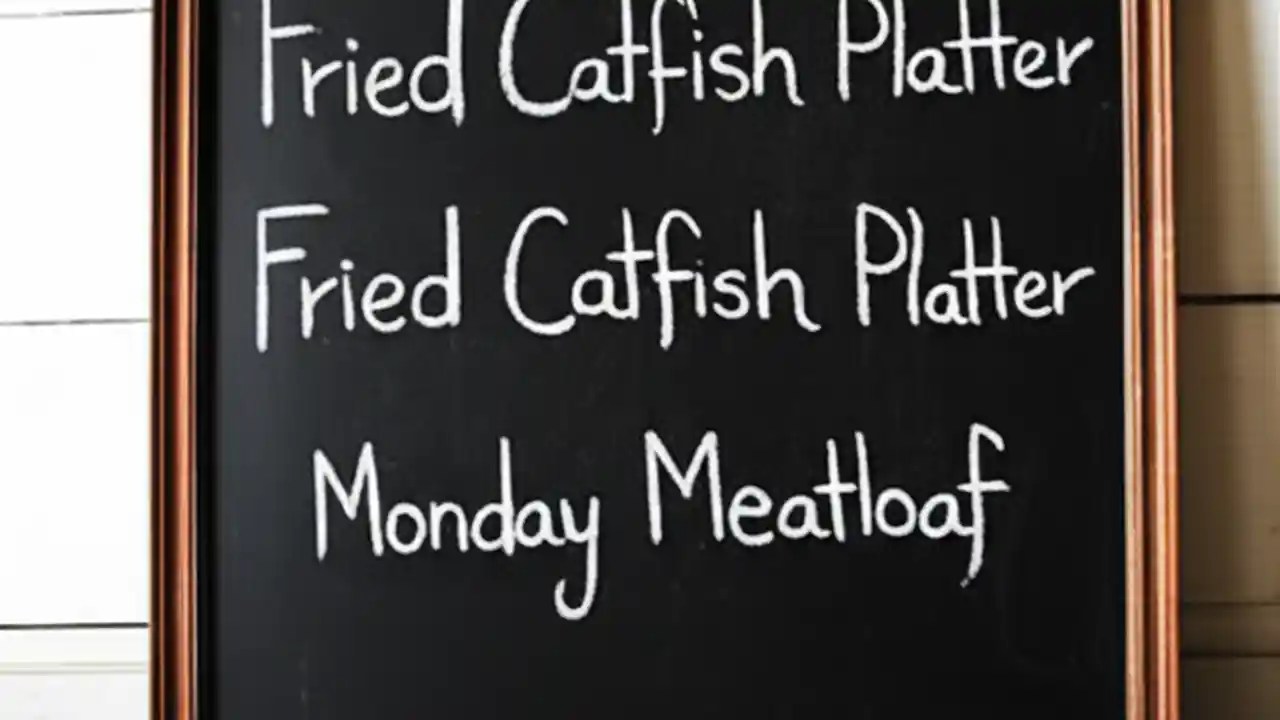 Fried Catfish Platter
Fried Catfish Platter
Monday Meatloaf